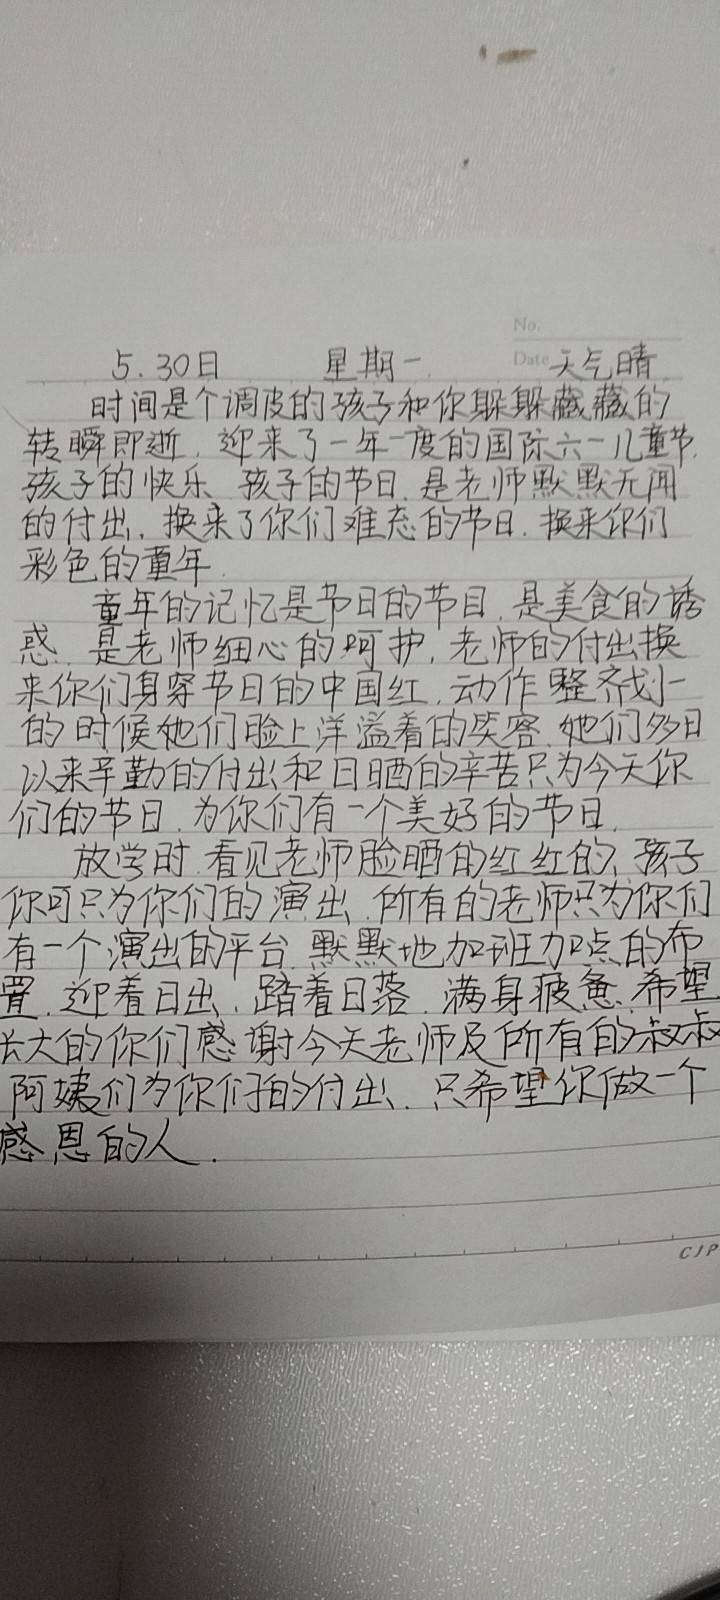 No.
Date
5.30日 星期一 天气晴
时间是个调皮的孩子和你躲躲藏藏的
转瞬即逝.迎来了一年一度的国际六一儿童节.
孩子的快乐、孩子的节日.是老师默默无闻
的付出.换来了你们难忘的节日.换来你们
彩色的童年.
童年的记忆是节日的节目.是美食的诱
惑.是老师细心的呵护.老师的付出换
来你们身穿节日的中国红.动作整齐划一
的时候她们脸上洋溢着的笑容.她们多日
以来辛勤的付出和日晒的辛苦只为今天你
们的节日.为你们有一个美好的节日.
放学时.看见老师脸晒的红红的、孩子
你可只为你们的演出.所有的老师只为你们
有一个演出的平台.默默地加班加点的布
置.迎着日出、踏着日落.满身疲惫.希望
长大的你们感谢今天老师及所有的叔叔
阿姨们为你们的付出.只希望你做一个
感恩的人.
CJP